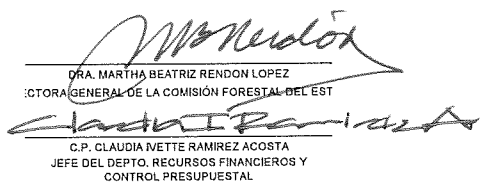 MBRendón
DRA. MARTHA BEATRIZ RENDON LOPEZ
ECTORA GENERAL DE LA COMISIÓN FORESTAL DEL EST
Claudia I Ramirez A
C.P. CLAUDIA IVETTE RAMIREZ ACOSTA
JEFE DEL DEPTO. RECURSOS FINANCIEROS Y
CONTROL PRESUPUESTAL